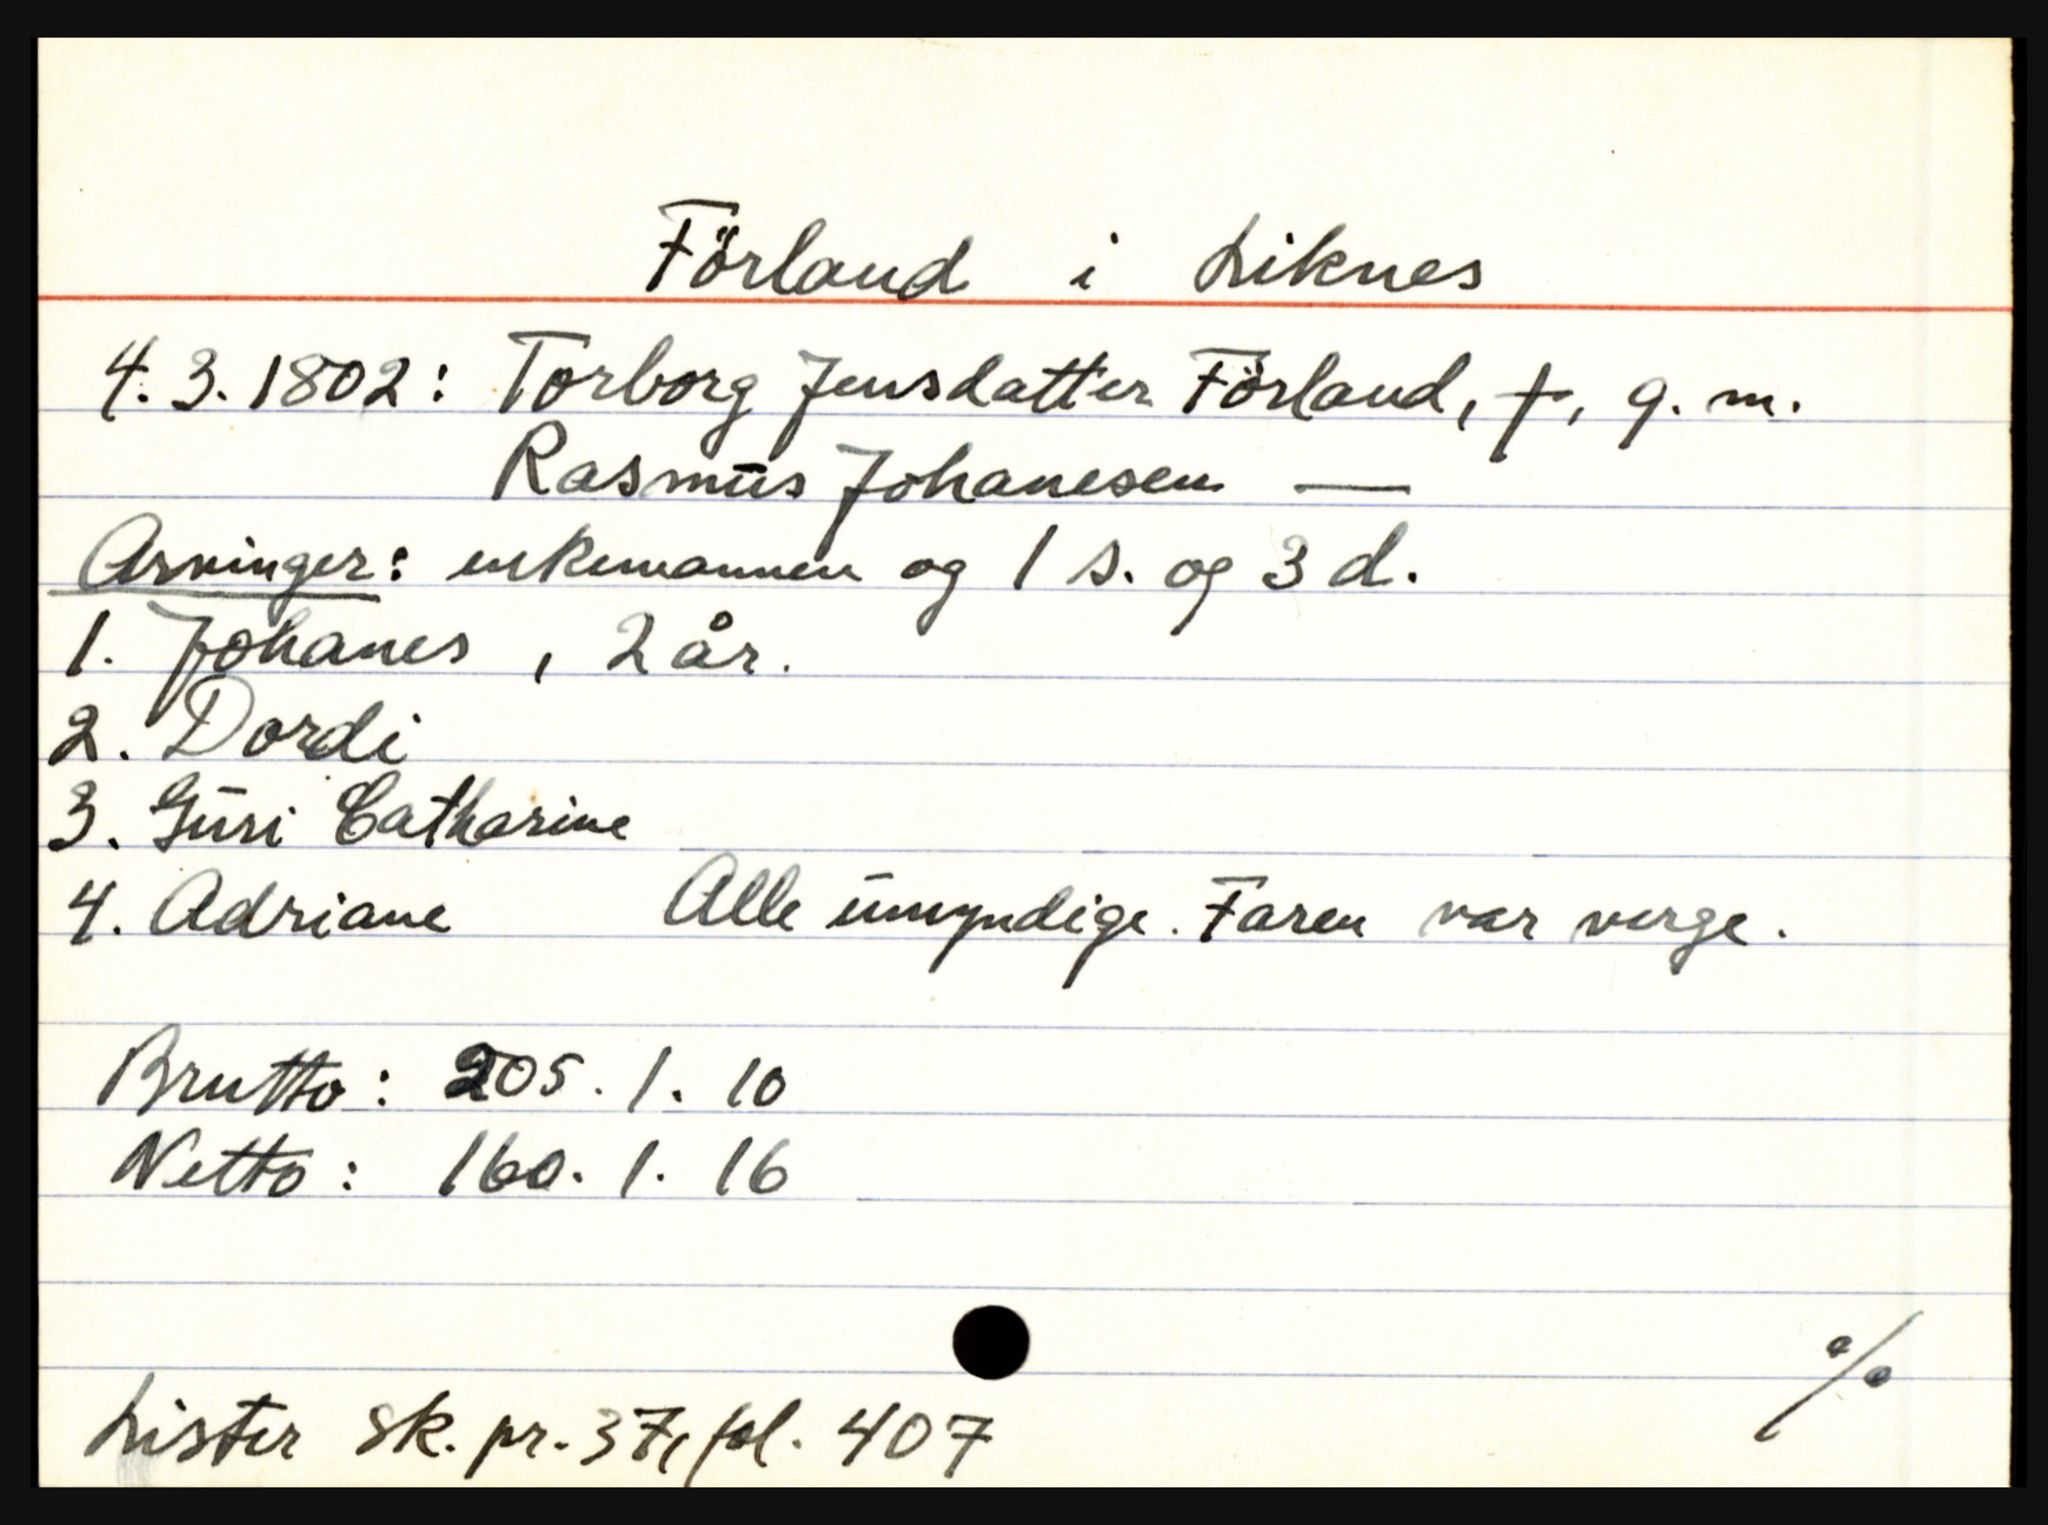 Förland i Liknes
4.3.1802: Torborg Jensdatter Förland, †, g. m.
Rasmus Johanesen —
Arvinger: enkemannen og 1 s. og 3 d.
1. Johanes, 2 år.
2. Dordi
3. Guri Catharine
4. Adriane Alle umyndige. Faren var verge.
Brutto: 205. 1. 10
Netto: 160. 1. 16
%
Lister sk. pr. 37, fol. 407